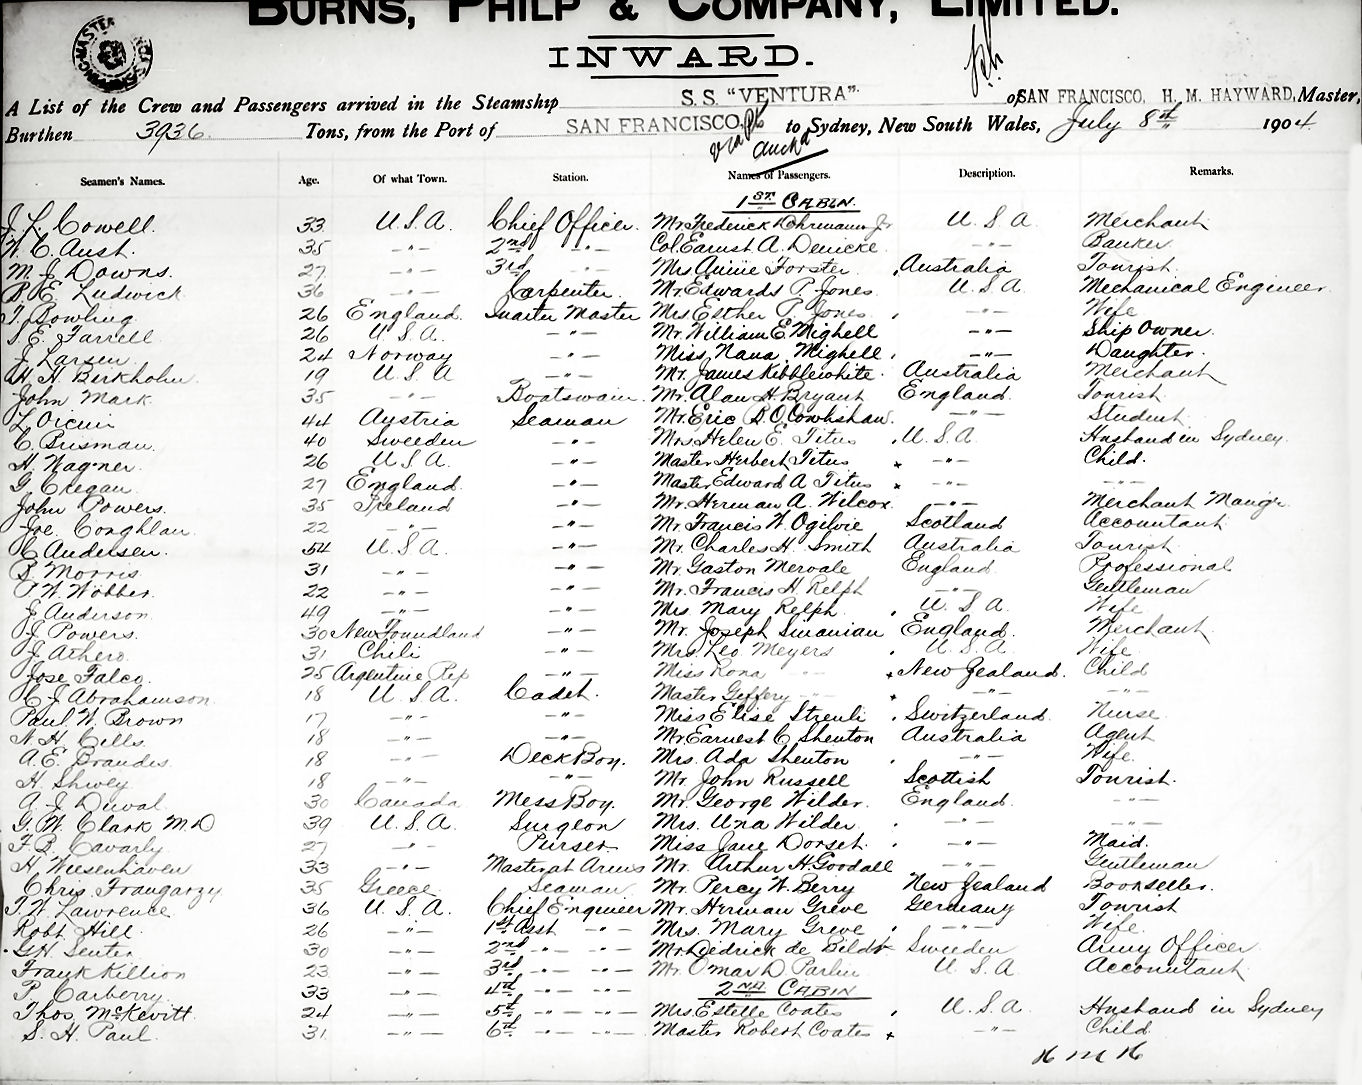 BURNS, PHILP & COMPANY, LIMITED.
INWARD.
A List of the Crew and Passengers arrived in the Steamship S. S. "VENTURA" of SAN FRANCISCO, H. M. HAYWARD, Master,
Burthen 3936 Tons, from the Port of SAN FRANCISCO, to Sydney, New South Wales, July 8th 1904
via
Seamen's Names. Age. Of what Town. Station. Names of Passengers. Description. Remarks.
1ST CABIN.
J. L. Cowell. 33 U.S.A. Chief Officer. Mr Frederick Jr U.S.A. Merchant
W. C. Aust. 35 -"- 2nd -"- Col. Earnst A. Denicke -"- Banker
M. J. Downs. 27 -"- 3rd -"- Mrs Annie Forster Australia Tourist.
B. E. Ludwick 36 -"- Carpenter. Mr. Edwards P. Jones U.S.A. Mechanical Engineer
T. Bowling 26 England. Quarter Master Mrs Esther P. Jones -"- Wife
E. Farrell 26 U.S.A. -"- Mr. William E. Mighell -"- Ship Owner.
J. Larsen. 24 Norway -"- Miss Nana Mighell -"- Daughter.
H. H. Berkholm 19 U.S.A -"- Mr. James Kibblewhite. Australia Merchant
John Mark. 35 -"- Boatswain. Mr. Alan H. Bryant England. Tourist
44 Austria Seaman Mr. Eric B. O. -"- Student
C. Brisman. 40 Sweeden -"- Mrs Helen E. Titus U.S.A. Husband in Sydney.
H. Wagner. 26 U.S.A. -"- Master Herbert Titus x -"- Child.
G. Cregan. 27 England. -"- Master Edward A. Titus x -"- -"-
John Powers. 35 Ireland -"- Mr. Herman A. Wilcox -"- Merchant Mangr.
Joe. Coughlan. 22 -"- -"- Mr. Francis W. Ogilvie Scotland Accountant.
C. Andersen. 54 U.S.A. -"- Mr. Charles H. Smith Australia Tourist.
B. Morris. 31 -"- -"- Mr. Gaston Mervale England Professional
W. Wobber. 22 -"- -"- Mr. Francis H. Relph -"- Gentleman
J. Anderson. 49 -"- -"- Mrs. Mary Relph U.S.A. Wife
J. Powers. 30 Newfoundland -"- Mr. Joseph England. Merchant
J. Athero. 31 Chili -"- Mrs. Leo Meyers U.S.A. Wife
Jose Falco. 25 Argentine Rep -"- Miss Rona -"- x New Zealand. Child
C. J. Abrahamson. 18 U.S.A. Cadet. Master Geffery -"- -"- -"-
Paul W. Brown 17 -"- -"- Miss Elise Streuli Switzerland. Nurse
N. H. Cills. 18 -"- -"- Mr. Earnest C. Shenton Australia Agent
A. E. Brandes. 18 -"- Deck Boy. Mrs. Ada Shenton -"- Wife.
H. Shivley 18 -"- -"- Mr. John Russell Scottish Tourist.
A. J. Duval. 30 Canada Mess Boy. Mr. George Wilder. England. -"-
G. W. Clark M D 39 U.S.A. Surgeon Mrs. Una Wilder -"- -"-
F. B. Cavarly. 27 -"- Purser. Miss Jane Dorset -"- Maid.
H. Wiesenhaven 33 -"- Master at Arms Mr. Arthur H. Goodall -"- Gentleman
Chris. 35 Greece Seaman. Mr. Percy W. Berry New Zealand Bookseller.
T. W. Lawrence 36 U.S.A. Chief Engineer Mr. Herman Greve Germany Tourist
Robt Hill. 26 -"- 1st Asst -"- Mrs. Mary Greve -"- Wife
G. H. Senter. 30 -"- 2nd -"- -"- Mr. Diedrick de Bildt Sweeden Army Officer
Frank Killion 23 -"- 3rd -"- -"- Mr. Omar D Parlin U.S.A. Accountant.
P. Carberry. 33 -"- 4th -"- -"- 2ND CABIN
Thos. McKevitt. 24 -"- 5th -"- -"- Mrs. Estelle Coates U.S.A. Husband in Sydney
S. H. Paul. 31 -"- 6th -"- -"- Master Robert Coates x -"- Child.